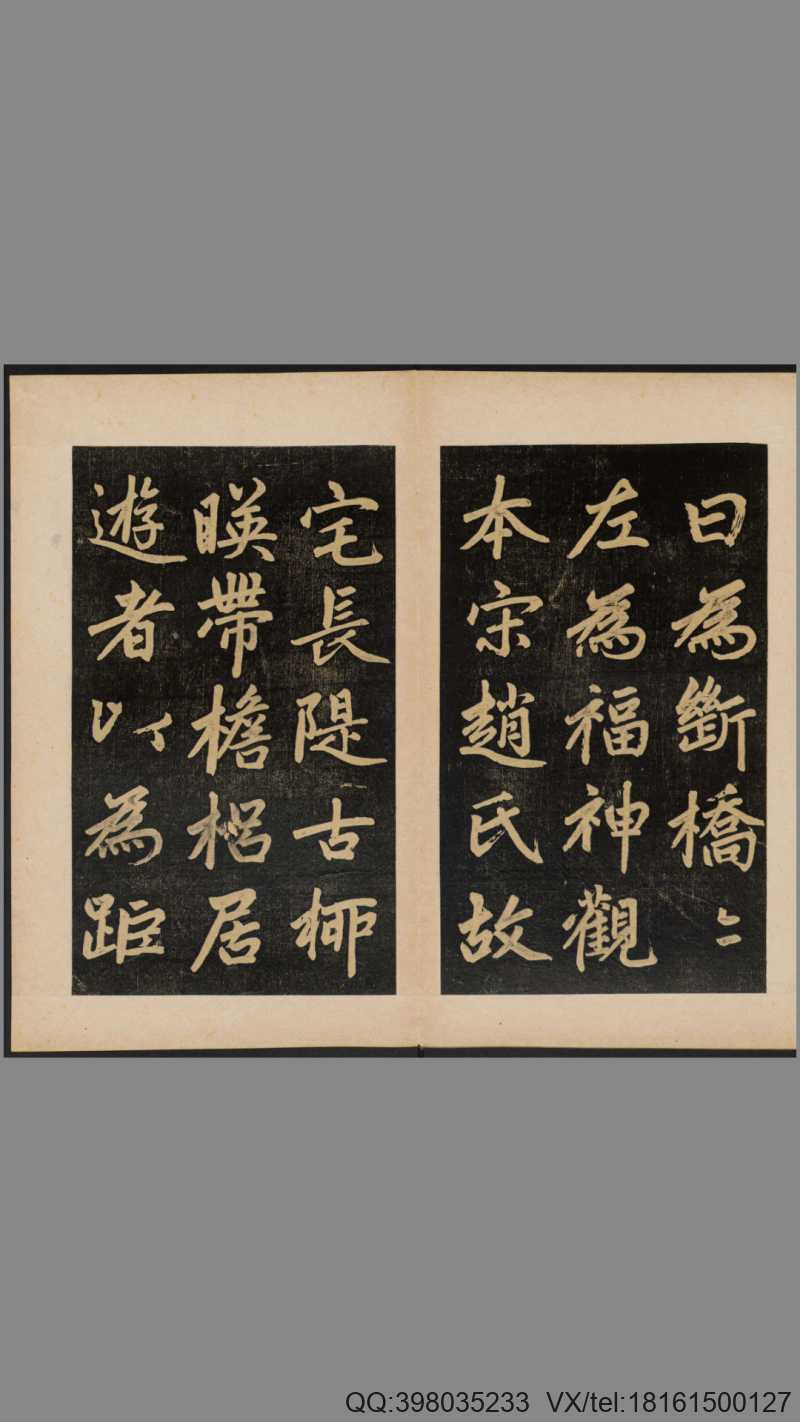 曰為斷橋〻
左為福神觀
本宋趙氏故
宅長隄古柳
暎帶檐梠居
遊者以為距
QQ:398035233 VX/tel:18161500127